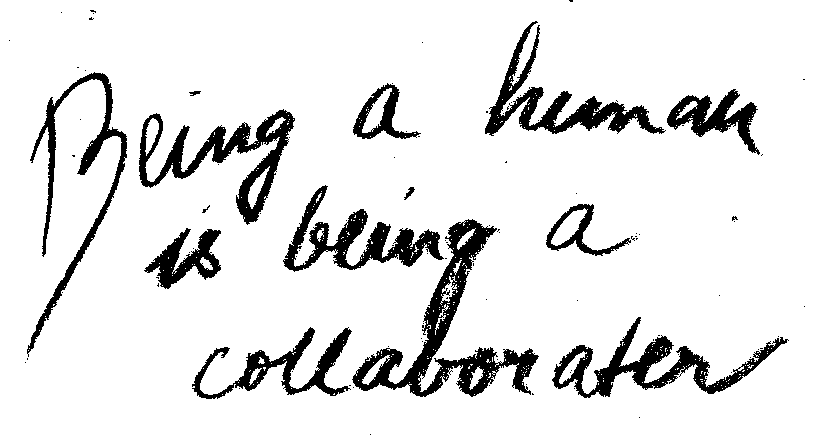 Being a human
is being a
collaborater